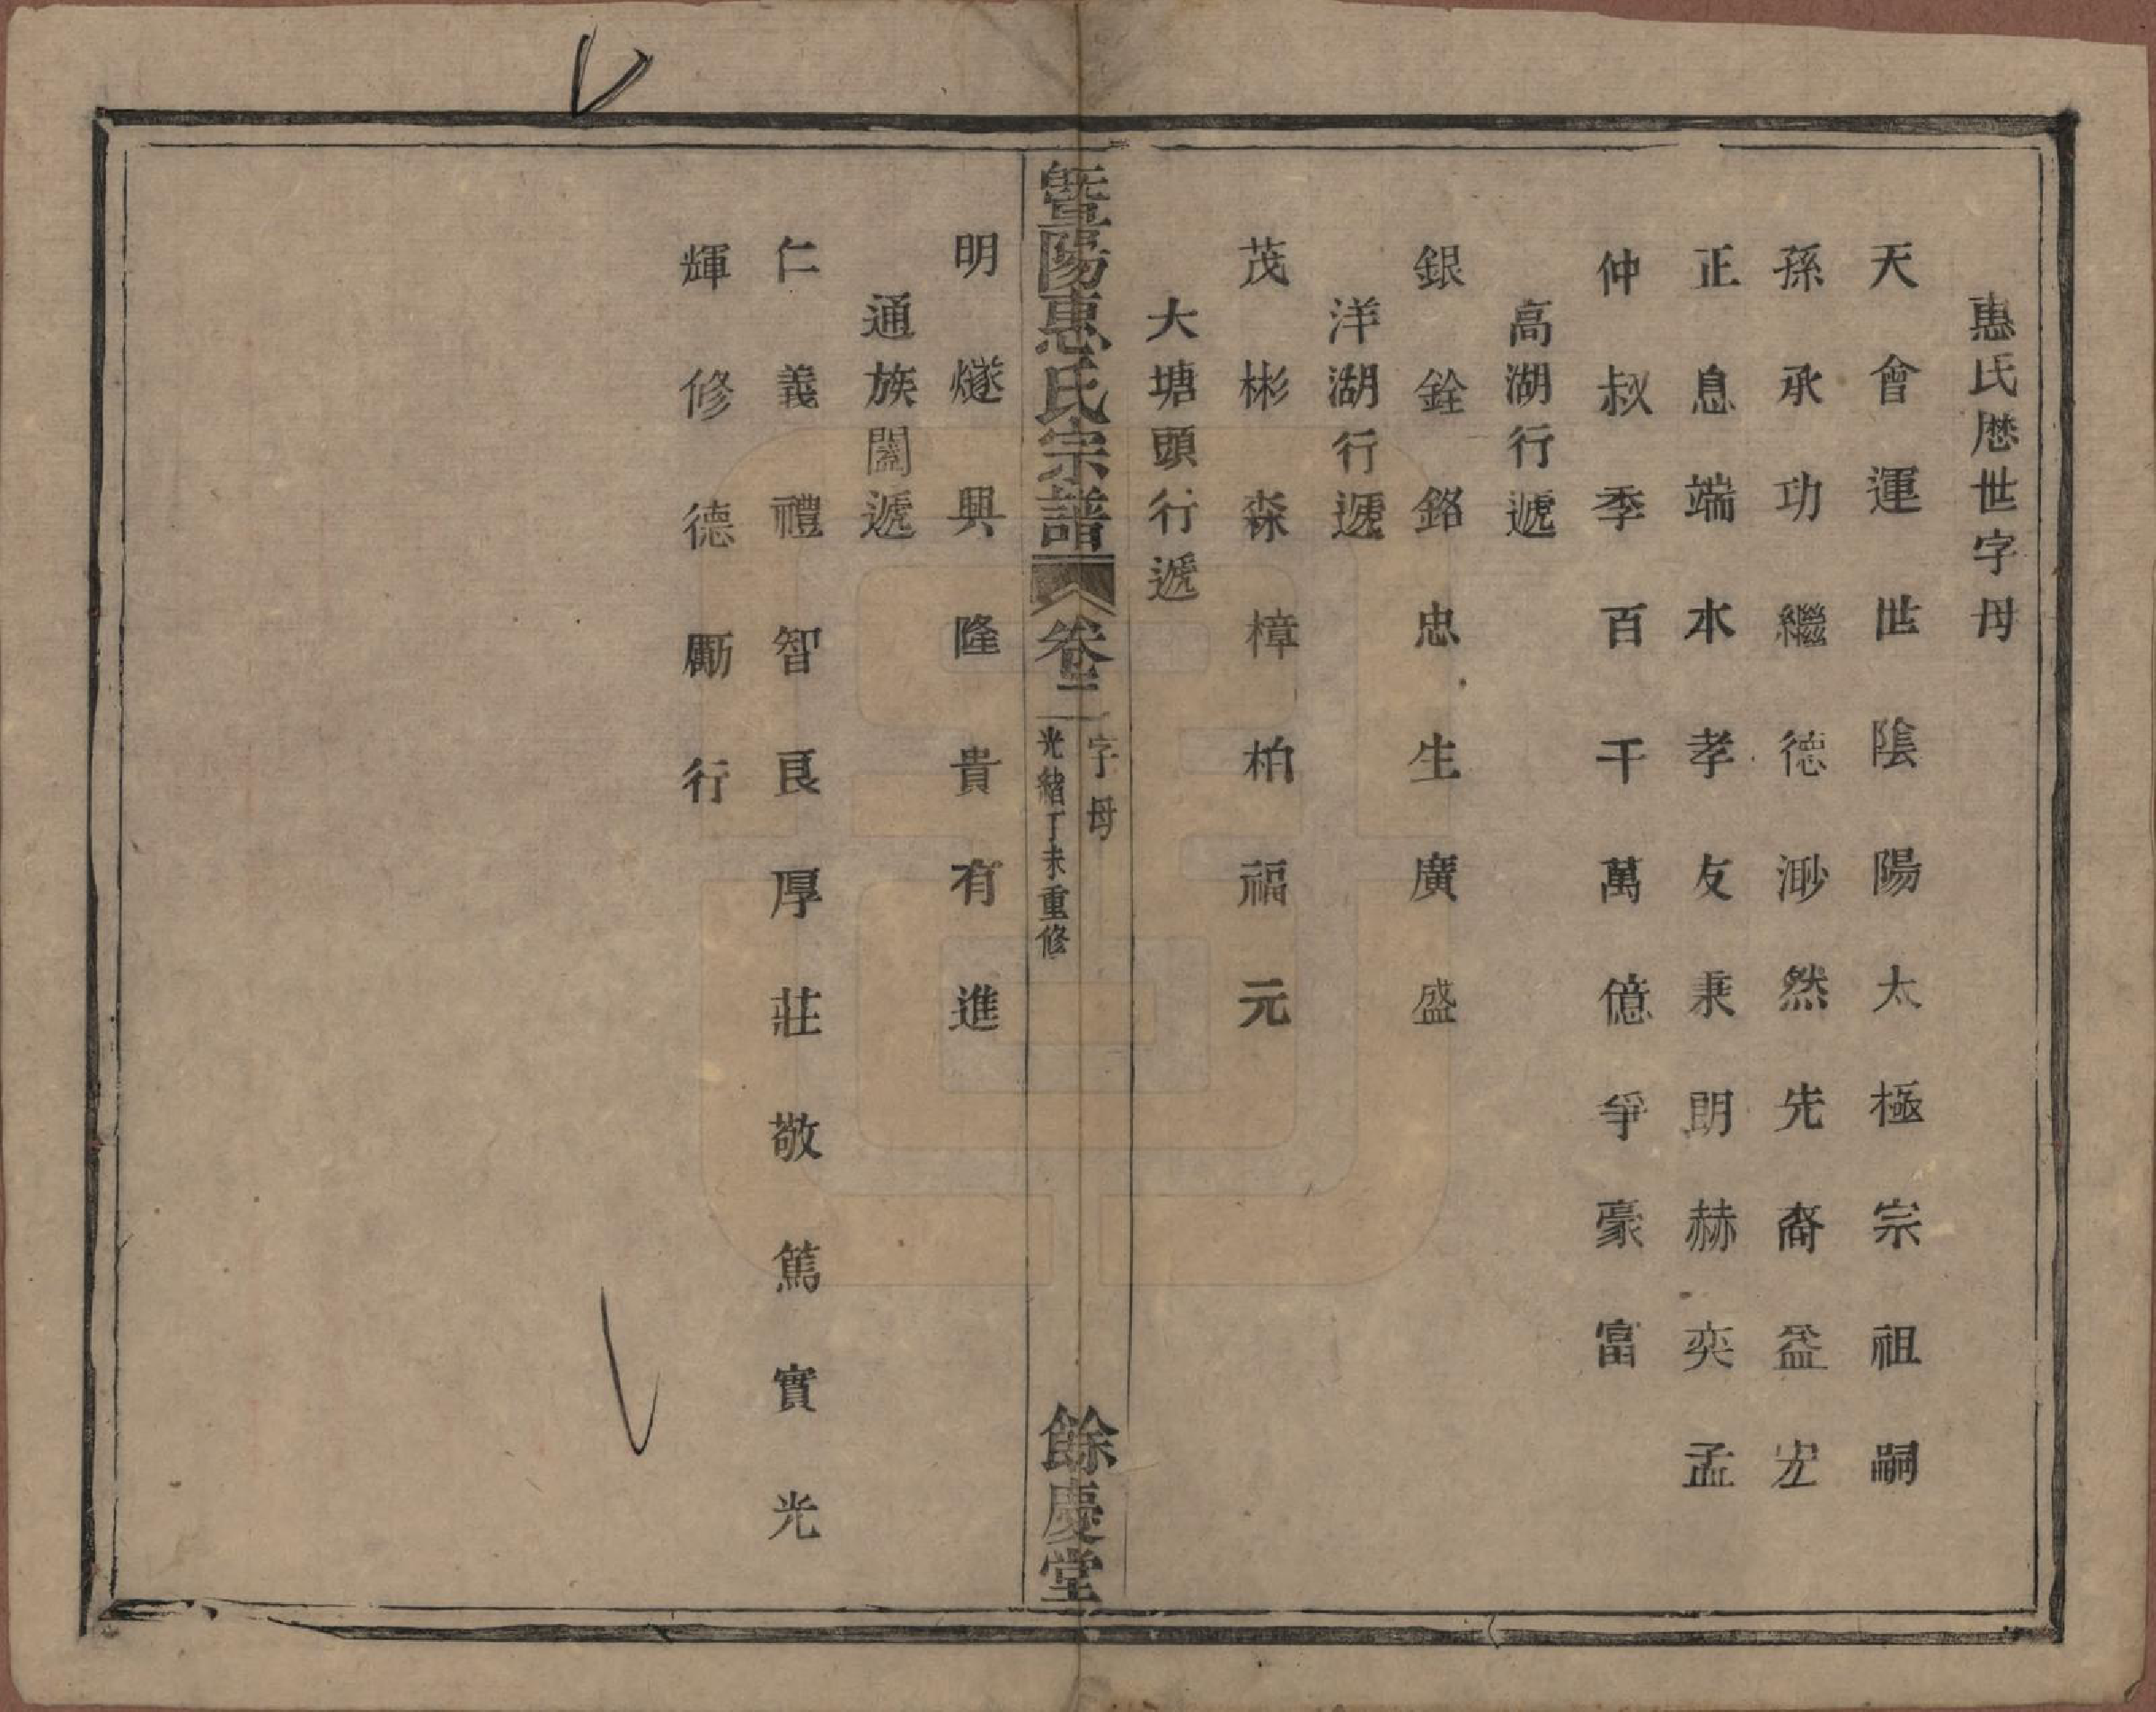 惠氏歷世字母
天會運世陰陽太極宗祖嗣
孫承功繼德渺然先裔益宏
正息端本孝友秉朗赫奕孟
仲叔季百千萬億爭豪富
高湖行遞
銀銓銘忠生廣盛
洋湖行遞
茂彬森樟柏福元
大塘頭行遞
暨陽惠氏宗譜
卷二
字母
光緒丁未重修
餘慶堂
明燧興隆貴有進
通族闔遞
仁義禮智良厚莊敬篤實光
輝修德勵行